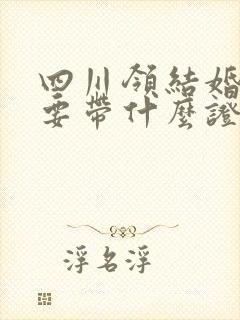 四川領結婚
要帶什麼證
浮名浮